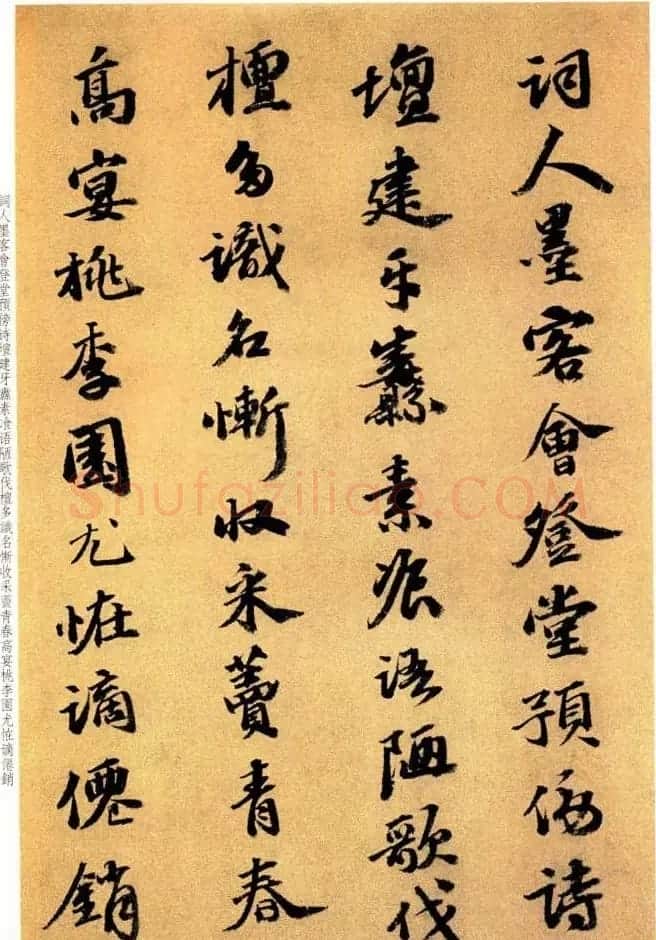 詞人墨客會登堂預傍詩
壇建牙纛素飡語陋歌伐
檀多識名慚收采藚青春
高宴桃李園尤恠謫僊銷
詞人墨客會登堂預傍詩壇建牙纛素飡语陋歌伐檀多識名慚收采藚青春高宴桃李園尤恠謫僊銷
Shufaziliao.COM